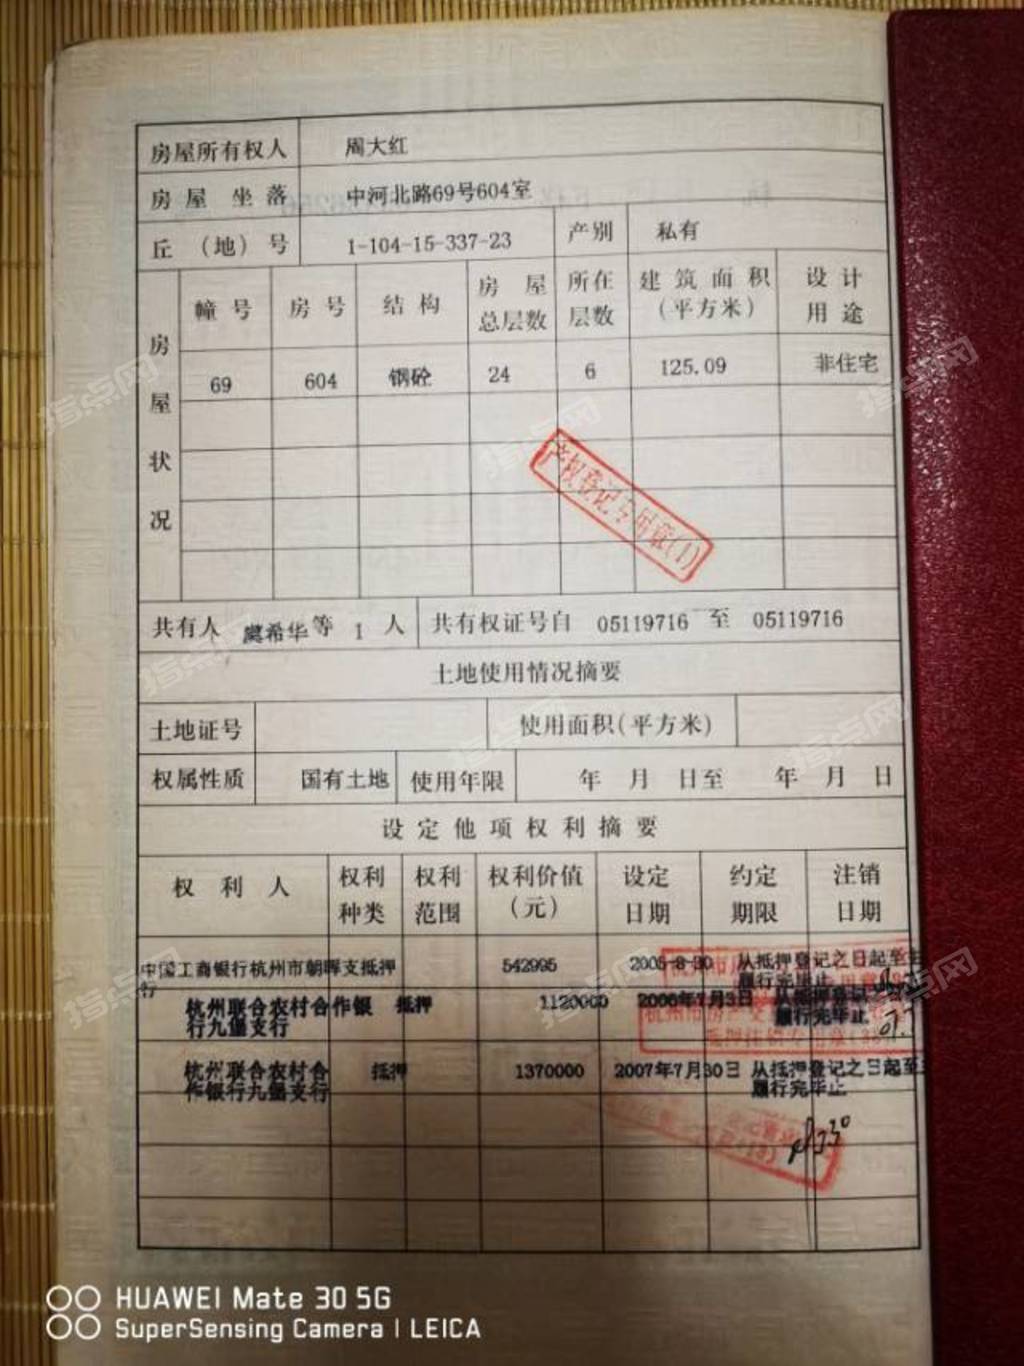 房屋所有权人 周大红
房屋坐落 中河北路69号604室
丘（地）号 1-104-15-337-23 产别 私有
房屋状况
幢号 房号 结构 房屋总层数 所在层数 建筑面积（平方米） 设计用途
69 604 钢砼 24 6 125.09 非住宅
产权登记专用章(1)
共有人 虞希华等 1 人 共有权证号自 05119716 至 05119716
土地使用情况摘要
土地证号 使用面积(平方米)
权属性质 国有土地 使用年限 年 月 日至 年 月 日
设定他项权利摘要
权利人 权利种类 权利范围 权利价值（元） 设定日期 约定期限 注销日期
中国工商银行杭州市朝晖支 抵押 542995 2005-8-30 从抵押登记之日起至
行 履行完毕止
杭州联合农村合作银 抵押 1120000 2006年7月3日 从抵押登记
行九堡支行 履行完毕止
抵押注销专用章
杭州联合农村合 抵押 1370000 2007年7月30日 从抵押登记之日起至
作银行九堡支行 履行完毕止
指点网
HUAWEI Mate 30 5G
SuperSensing Camera | LEICA